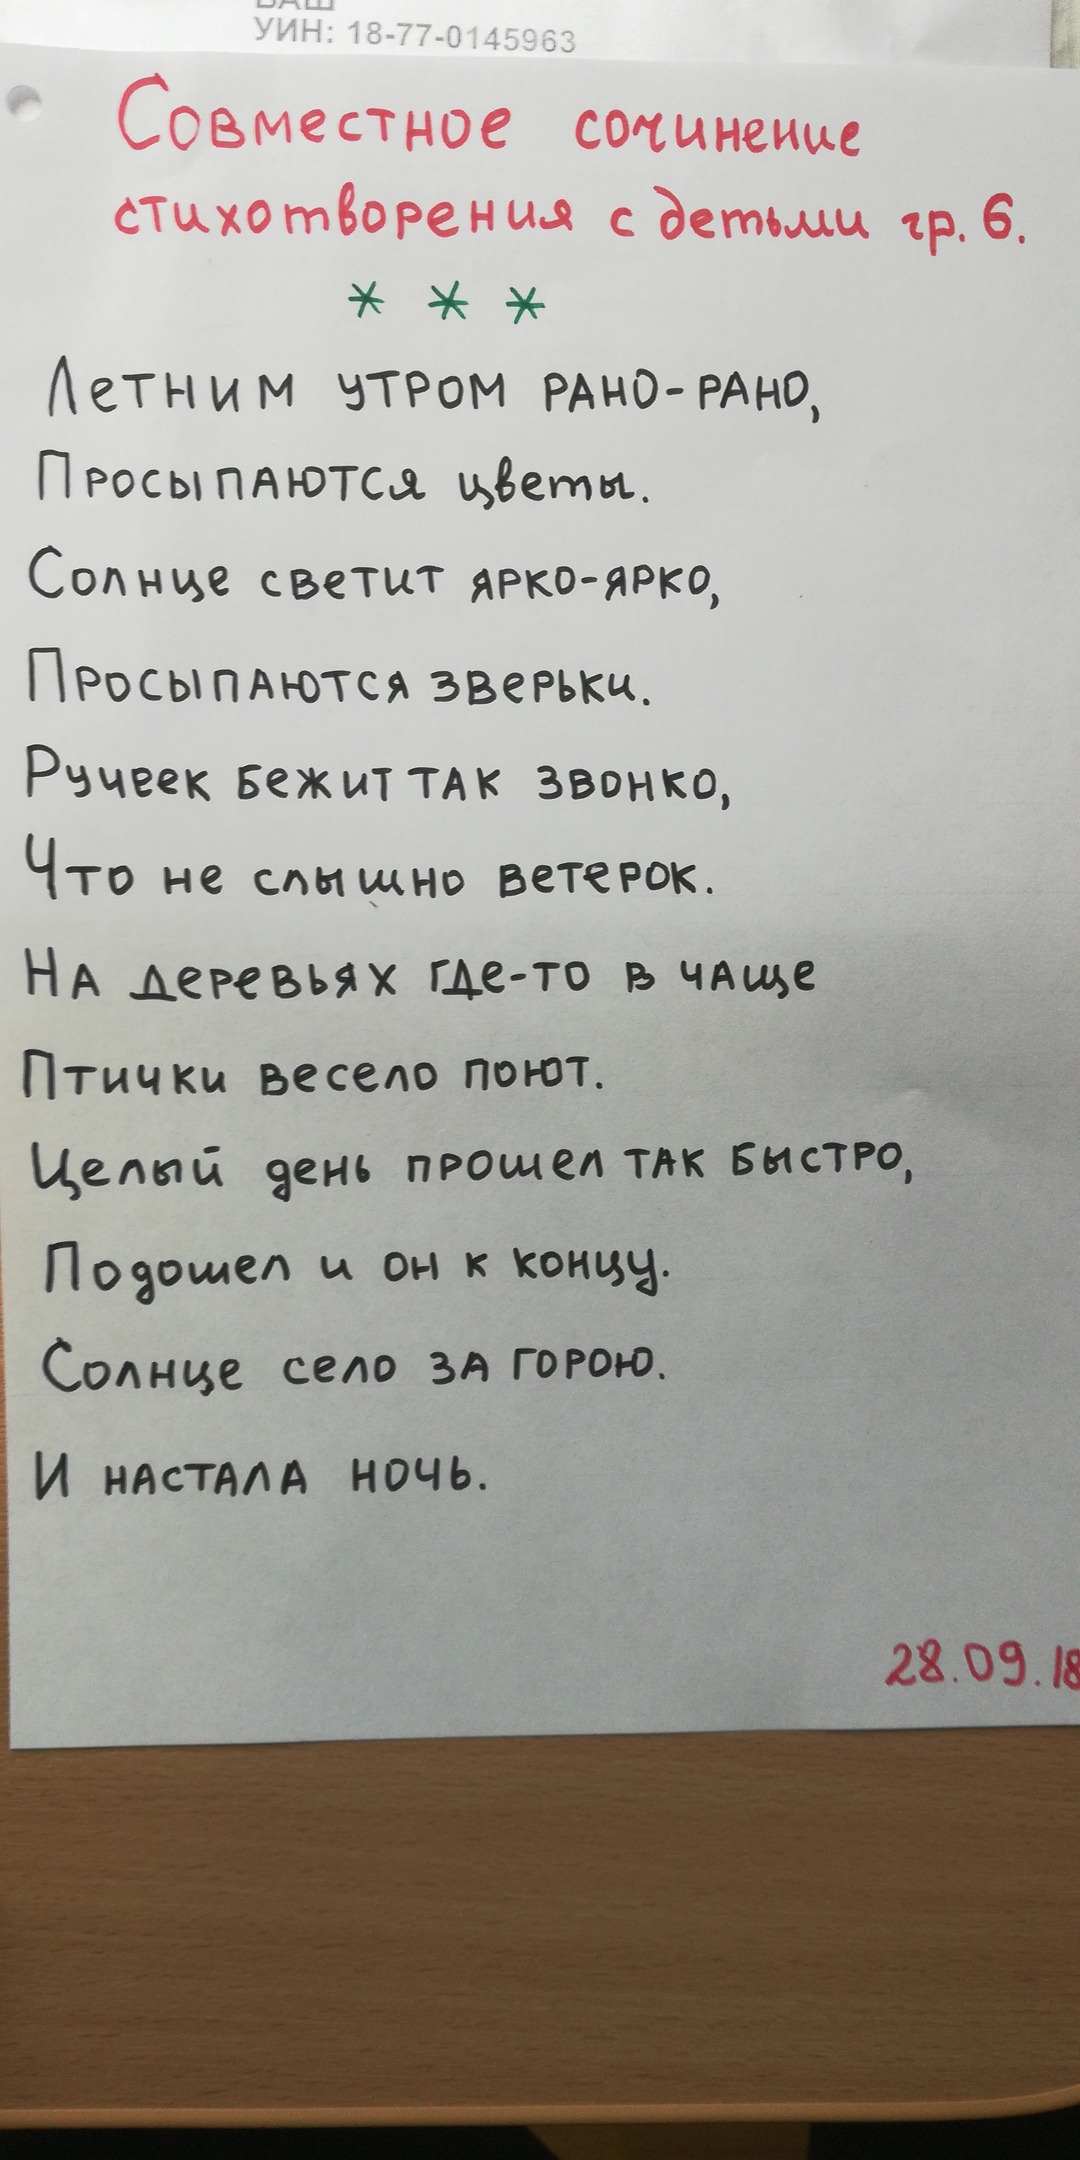 ВАШ
УИН: 18-77-0145963
Совместное сочинение
стихотворения с детьми гр. 6.
* * *
Летним утром рано-рано,
Просыпаются цветы.
Солнце светит ярко-ярко,
Просыпаются зверьки.
Ручеек бежит так звонко,
Что не слышно ветерок.
На деревьях где-то в чаще
Птички весело поют.
Целый день прошел так быстро,
Подошел и он к концу.
Солнце село за горою.
И настала ночь.
28.09.18